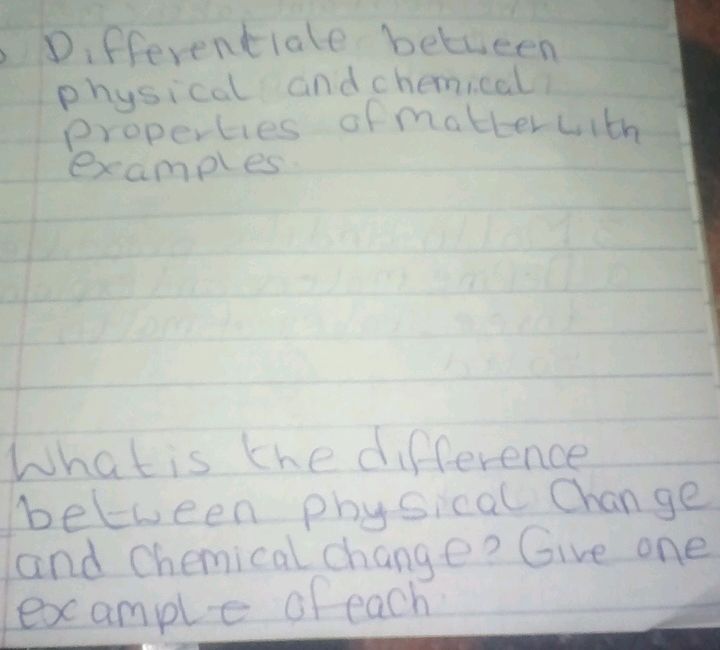 Differentiate between
physical and chemical
properties of matter with
examples
What is the difference
between physical Change
and Chemical change? Give one
example of each